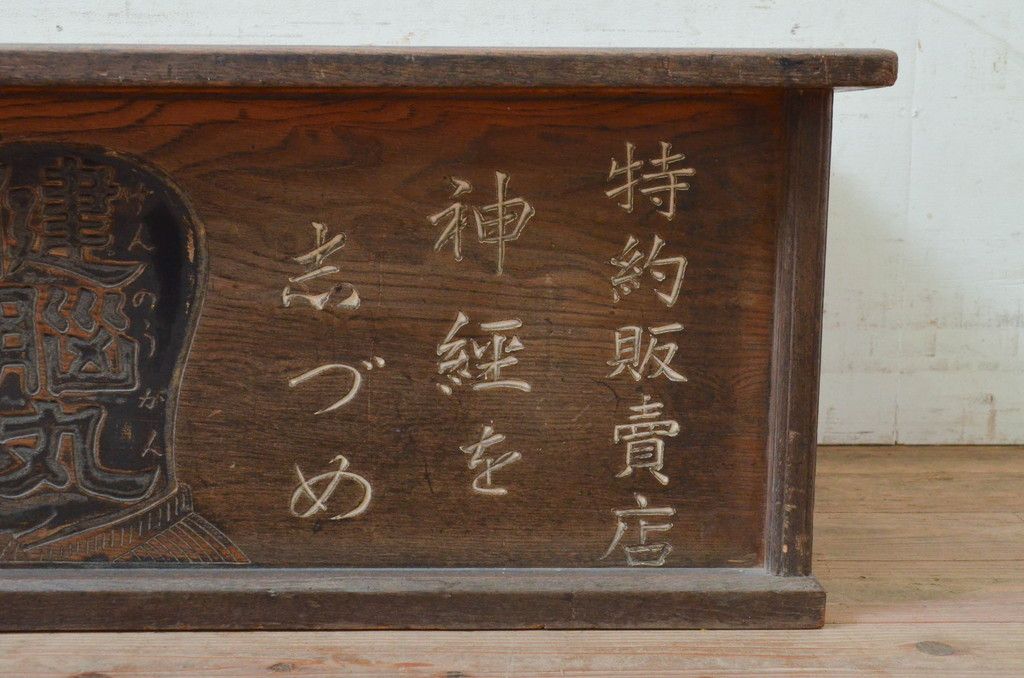 特約販賣店
神經を
志づめ
けんのうがん
健腦丸